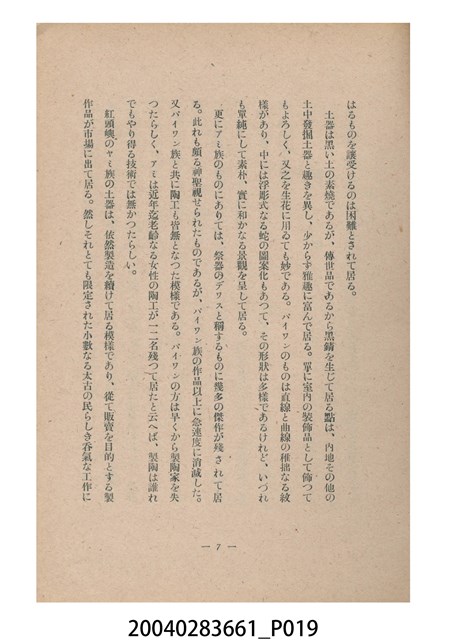 はるものを讓受けるのは困難とされて居る。
土器は黑い土の素燒であるが、傳世品であるから黑錆を生じて居る點は、內地その他の
土中發掘土器と趣きを異し、少からず雅趣に富んで居る。單に室內の裝飾品として飾つて
もよろしく、又之を生花に川ゐても妙である。パイワンのものは直線と曲線の稚拙なる紋
樣があり、中には浮彫式なる蛇の圖案化もあつて、その形狀は多樣であるけれど、いづれ
も單純にして素朴、實に和かなる景觀を呈して居る。
更にアミ族のものにありては、祭器のデリスと稱するものに幾多の傑作が殘されて居
る。此れも頗る神聖視せられたものであるが、パイワン族の作品以上に急速度に消滅した。
又パイワン族と共に陶工も皆無となつた模樣である。パイワンの方は早くから製陶家を失
つたらしく、アミは近年迄老齡なる女性の陶工が一二名殘つて居たと云へば、製陶は誰れ
でもやり得る技術では無かつたらしい。
紅頭嶼のヤミ族の土器は、依然製造を續けて居る模樣であり、從て販賣を目的とする製
作品が市場に出て居る。然しそれとても限定された小數なる太古の民らしき呑氣な工作に
— 7 —
20040283661_P019